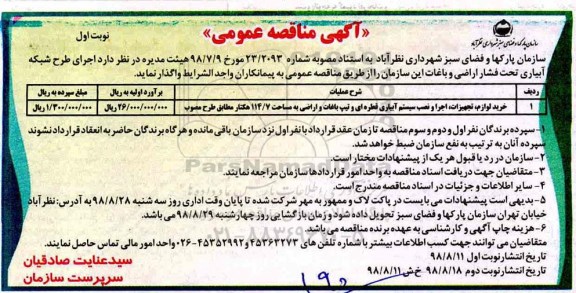 «آگهی مناقصه عمومی»
نوبت اول
سازمان پارکها و فضای سبز شهرداری نظرآباد
سازمان پارکها و فضای سبز شهرداری نظرآباد به استناد مصوبه شماره ۲۳/۲۰۹۳ مورخ ۹۸/۷/۹ هیئت مدیره در نظر دارد اجرای طرح شبکه
آبیاری تحت فشار اراضی و باغات این سازمان را از طریق مناقصه عمومی به پیمانکاران واجد الشرایط واگذار نماید.
ردیف شرح عملیات برآورد اولیه به ریال مبلغ سپرده به ریال
۱ خرید لوازم، تجهیزات، اجرا و نصب سیستم آبیاری قطره ای و تیپ باغات و اراضی به مساحت ۱۱۴/۷ هکتار مطابق طرح مصوب ۲۶/۰۰۰/۰۰۰/۰۰۰ ریال ۱/۳۰۰/۰۰۰/۰۰۰ ریال
۱- سپرده برندگان نفر اول و دوم و سوم مناقصه تا زمان عقد قرارداد با نفر اول نزد سازمان باقی مانده و هرگاه برندگان حاضر به انعقاد قرارداد نشوند
سپرده آنان به ترتیب به نفع سازمان ضبط خواهد شد.
۲- سازمان در رد یا قبول هر یک از پیشنهادات مختار است.
۳- متقاضیان جهت دریافت اسناد مناقصه به واحد امور قراردادها سازمان مراجعه نمایند.
۴- سایر اطلاعات و جزئیات در اسناد مناقصه مندرج است.
۵- بدیهی است پیشنهادات می بایست در پاکت لاک و ممهور به مهر شرکت شده تا پایان وقت اداری روز سه شنبه ۹۸/۸/۲۸ به آدرس: نظرآباد
خیابان تهران سازمان پارکها و فضای سبز تحویل داده شود و زمان بازگشایی روز چهارشنبه ۹۸/۸/۲۹ می باشد.
۶- هزینه چاپ آگهی و کارشناسی به عهده برنده مناقصه می باشد.
متقاضیان می توانند جهت کسب اطلاعات بیشتر با شماره تلفن های ۴۵۳۶۳۲۷۳ و ۴۵۳۵۲۹۹۲-۰۲۶ واحد امور مالی تماس حاصل نمایند.
تاریخ انتشار نوبت اول ۹۸/۸/۱۱
تاریخ انتشار نوبت دوم ۹۸/۸/۱۸ خ ش ۹۸/۸/۱۱
سید عنایت صادقیان
سرپرست سازمان
ParsNamadData